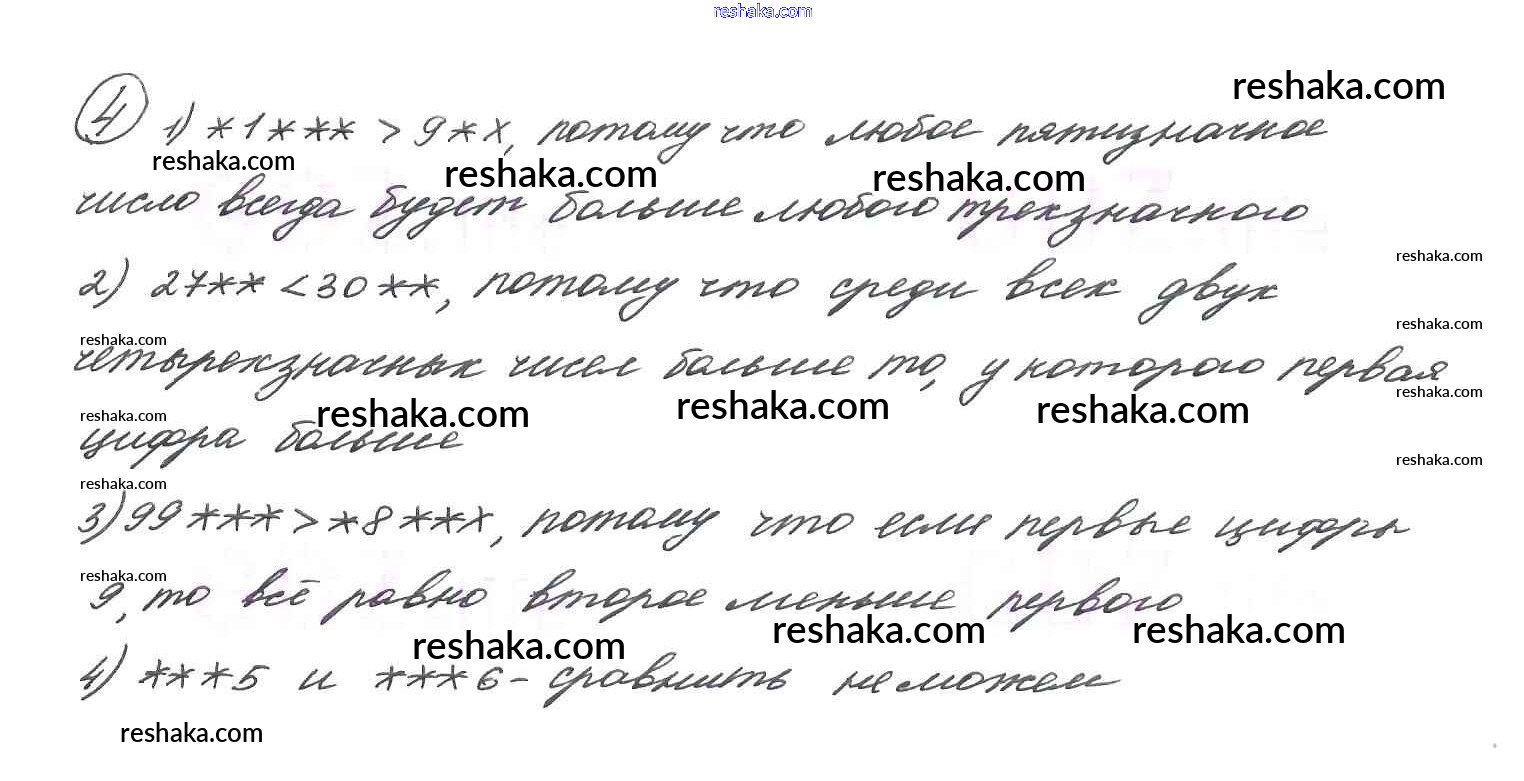 reshaka.com
reshaka.com
④ 1) *1*** > 9*x, потому что любое пятизначное
reshaka.com reshaka.com reshaka.com
число всегда будет больше любого трехзначного
reshaka.com
2) 27** < 30**, потому что среди всех двух
reshaka.com
reshaka.com
четырехзначных чисел больше то, у которого первая
reshaka.com
reshaka.com reshaka.com reshaka.com reshaka.com
цифра больше
reshaka.com
reshaka.com
3) 99*** > *8**x, потому что если первые цифры
reshaka.com
9, то всё равно второе меньше первого
reshaka.com reshaka.com reshaka.com
4) ***5 и ***6 - сравнить не можем
reshaka.com